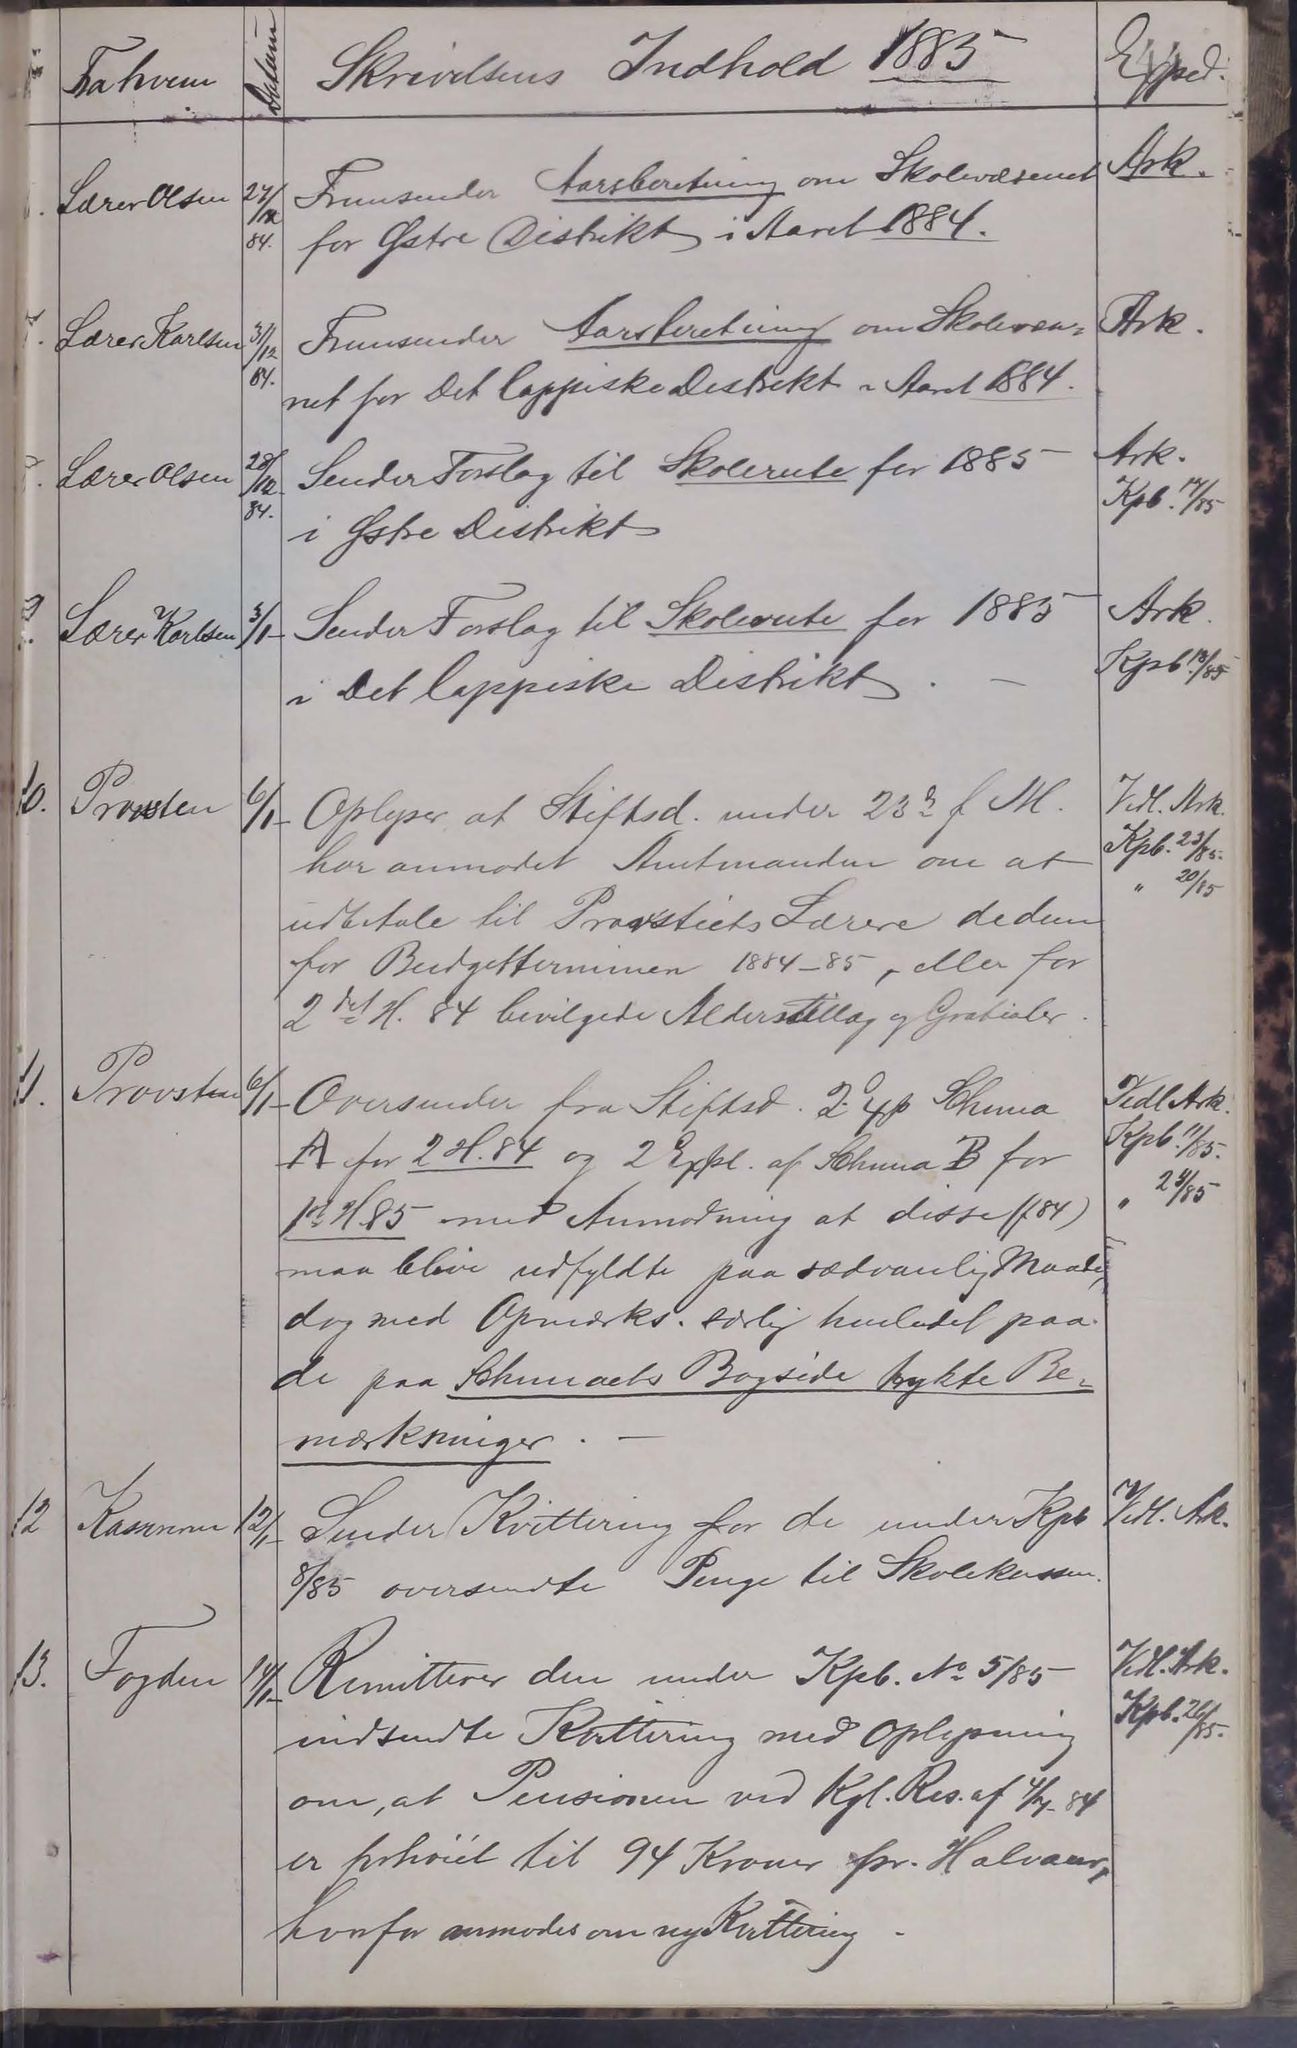 Fra hvem Datum Skrivelsens Indhold 1885 Exped.
Lærer Olsen 27/12 84. Fremsender Aarsberetning om Skolevæsenet Ark.
for Østre Distrikt i Aaret 1884.
Lærer Karlsen 31/12 84. Fremsender Aarsberetning om Skolevæs= Ark.
net for Det lappiske Distrikt i Aaret 1884.
Lærer Olsen 28/12 84. Sender Forslag til Skolerute for 1885 Ark.
i Østre Distrikt Kpb. 17/85
Lærer Karlsen 3/1 Sender Forslag til Skolerute for 1885 Ark.
i Det lappiske Distrikt. — Kpb 18/85
10. Provsten 6/1 Oplyser at Stiftsd. under 23de f. M. Vedl. Ark.
har anmodet Amtmanden om at Kpb. 23/85.
udbetale til Provstiets Lærere de dem " 20/85
for Budgetterminen 1884-85, eller for
2det H. 84 bevilgede Alderstillæg og Gratialer.
11. Provsten 6/1 Oversender fra Stiftsd. 2 Exp Schema Vedl Ark.
A for 2 H. 84 og 2 Expl. af Schema B for Kpb. 11/85.
1st H. 85 med Anmodning at disse (f 84) " 24/85
maa blive udfyldte paa sædvanlig Maade,
dog med Opmærks. særlig henledet paa
de paa Schemaets Bagside trykte Be=
mærkninger. —
12 Kasseren 12/1 Sender Kvittering for de under Kpb Vedl. Ark.
8/85 oversendte Penge til Skolekassen.
13. Fogden 14/1 Remitterer den under Kpb. No 5/85 Vedl. Ark.
indsendte Kvittering med Oplysning Kpb. 26/85.
om, at Pensionen ved Kgl. Res. af 4/7-84
er forhöiet til 94 Kroner pr. Halvaar,
hvorfor anmodes om ny Kvittering -